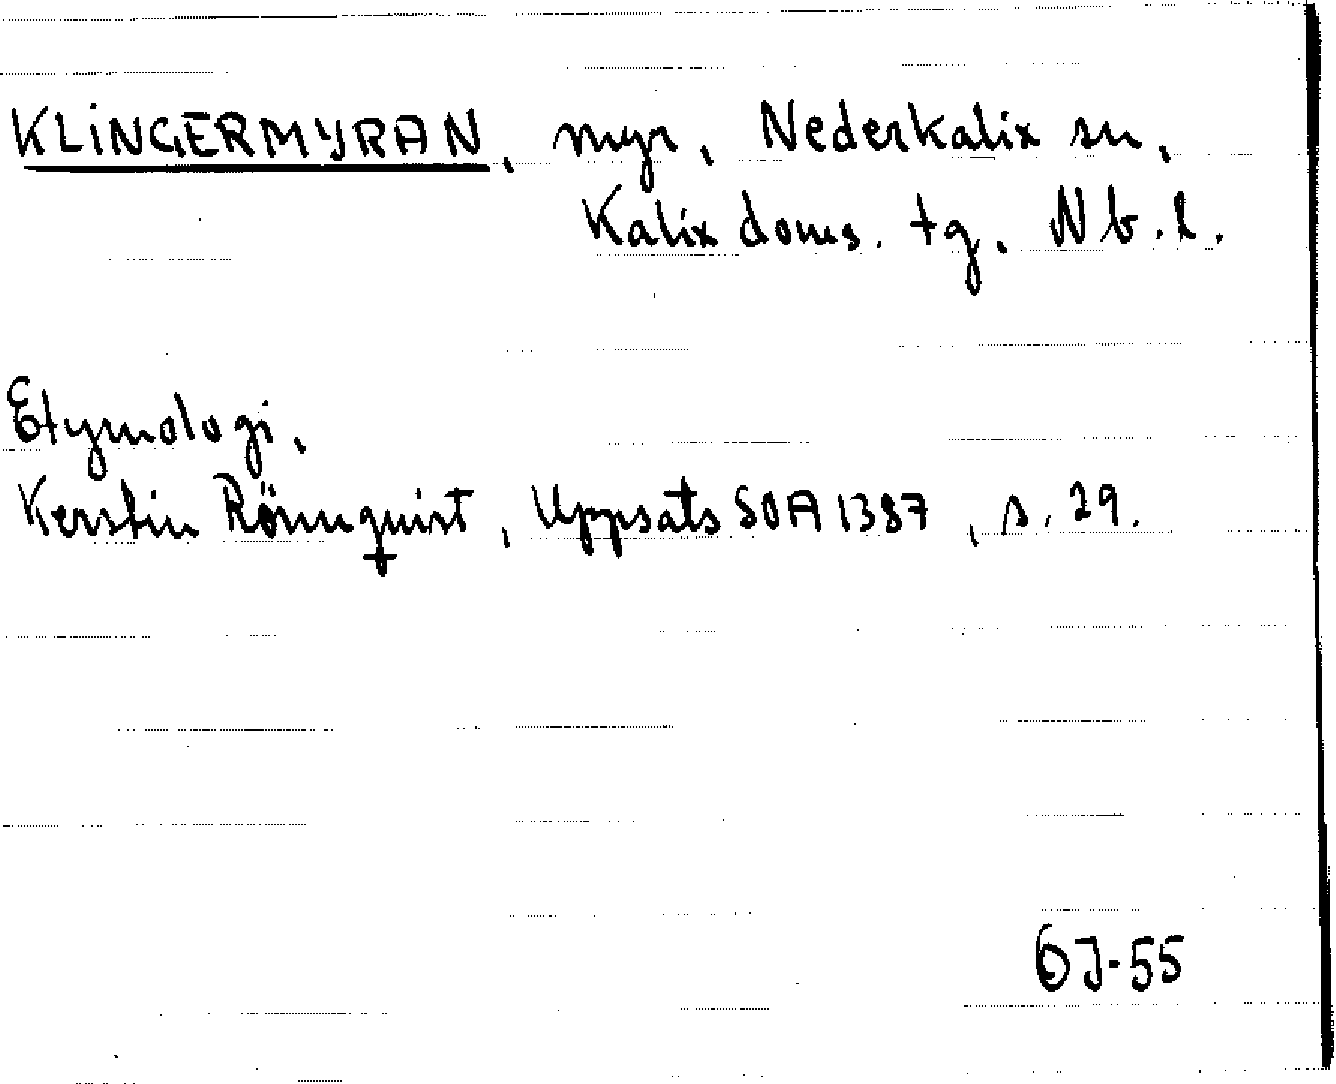 KLINGERMYRAN, myr, Nederkalix sn,
Kalix doms. tg. Nb.l.
Etymologi,
Kerstin Rönnquist, Uppsats SOA 1387, s. 29.
6J-55